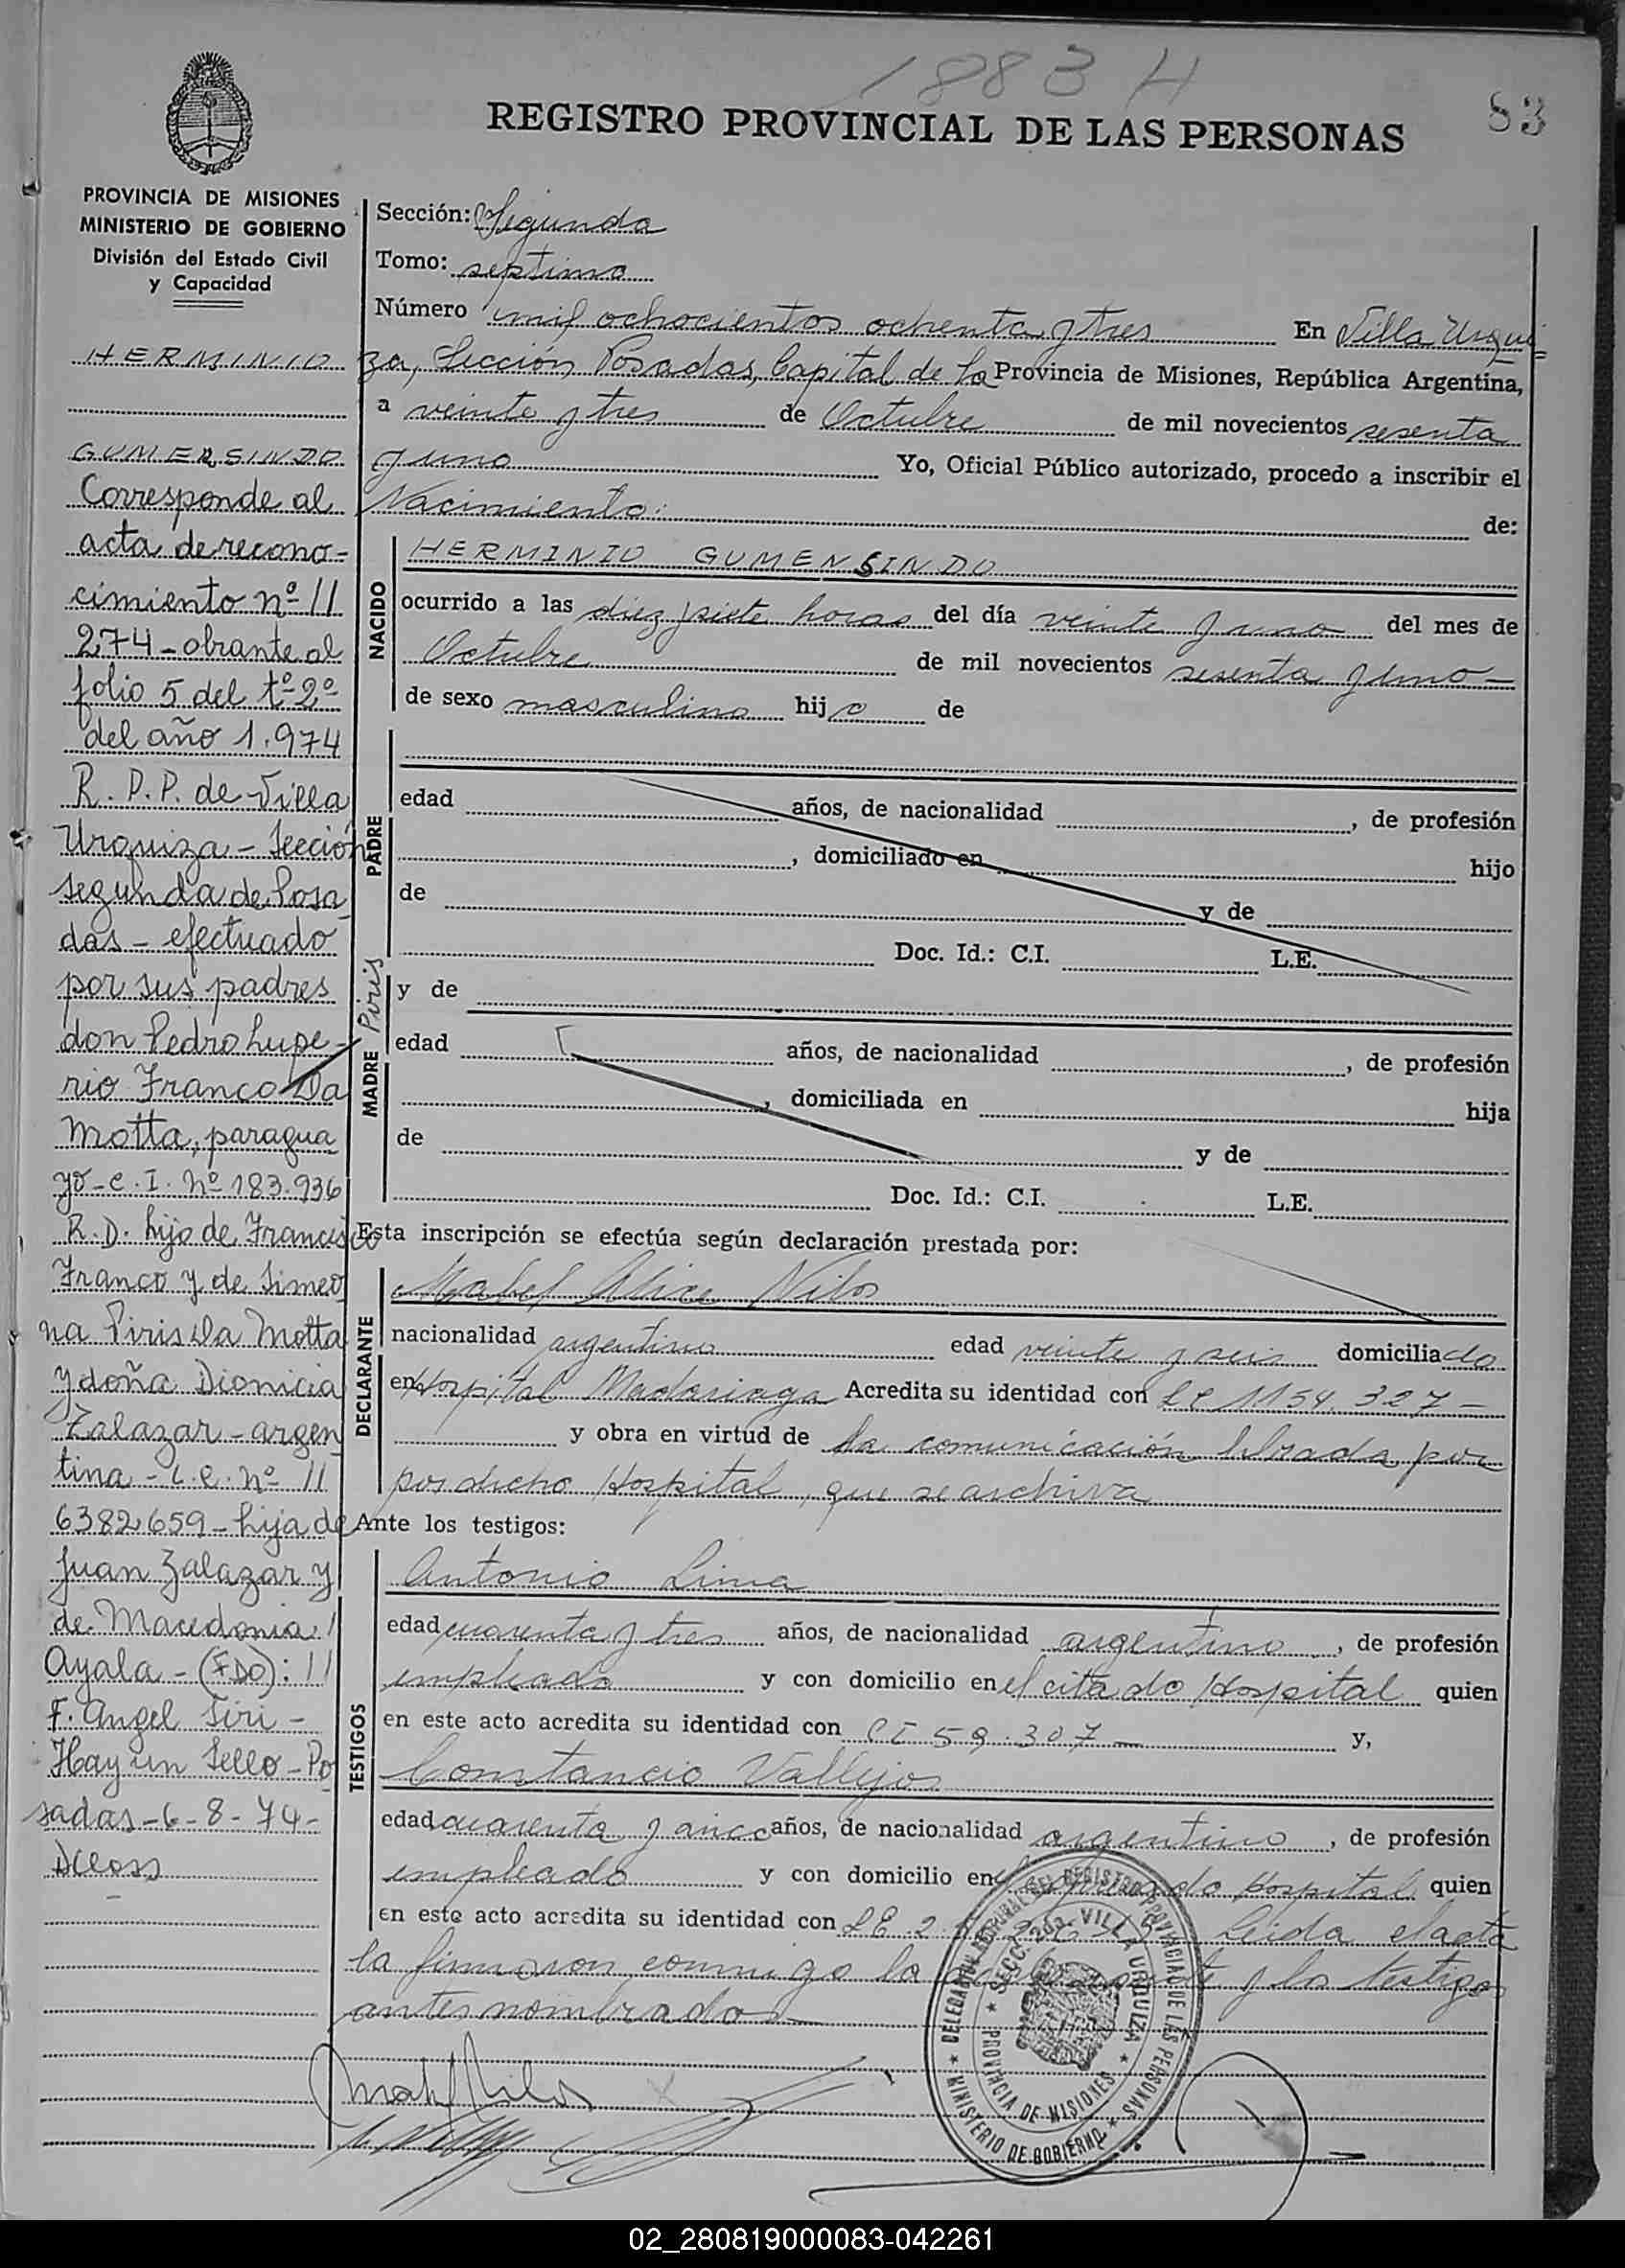 1883 H
83
REGISTRO PROVINCIAL DE LAS PERSONAS
PROVINCIA DE MISIONES
MINISTERIO DE GOBIERNO
División del Estado Civil
y Capacidad
HERMINIO
GUMERSINDO
Corresponde al
acta de recono-
cimiento nº 11
274 - obrante al
folio 5 del tº 2º
del año 1.974
R. P. P. de Villa
Urquiza - Sección
segunda de Posa
das - efectuado
por sus padres
don Pedro Lupe-
rio Franco Piris Da
Motta, paragua
yo - C. I. Nº 183.936
R. D. hijo de Francisco
Franco y de Simeo
na Piris Da Motta
y doña Dionicia
Zalazar - argen
tina - L. C. nº 11
6382659 - hija de
Juan Zalazar y
de Macedonia
Ayala - (FDO): 11
F. Angel Siri -
Hay un Sello - Po
sadas - 6 - 8 - 74 -
Sección: Segunda
Tomo: septimo
Número mil ochocientos ochenta y tres En Villa Urqui
za, Sección Posadas, Capital de la Provincia de Misiones, República Argentina,
a veinte y tres de Octubre de mil novecientos sesenta
y uno Yo, Oficial Público autorizado, procedo a inscribir el
Nacimiento: de:
NACIDO
HERMINIO GUMENSINDO
ocurrido a las diez y siete horas del día veinte y uno del mes de
Octubre de mil novecientos sesenta y uno -
de sexo masculino hijo de
PADRE
edad años, de nacionalidad , de profesión
, domiciliado en hijo
de y de
Doc. Id.: C.I. L.E.
MADRE
y de
edad años, de nacionalidad , de profesión
, domiciliada en hija
de y de
Doc. Id.: C.I. L.E.
Esta inscripción se efectúa según declaración prestada por:
DECLARANTE
Mabel Alice Nilos
nacionalidad argentina edad veinte y seis domiciliada
en Hospital Madariaga Acredita su identidad con LC 1154.327 -
y obra en virtud de la comunicación librada por
por dicho Hospital, que se archiva
Ante los testigos:
TESTIGOS
Antonio Lima
edad cuarenta y tres años, de nacionalidad argentino , de profesión
empleado y con domicilio en el citado Hospital quien
en este acto acredita su identidad con CI 59.307 - y,
Constancio Vallejos
edad cuarenta y cinco años, de nacionalidad argentino , de profesión
empleado y con domicilio en Hospital quien
en este acto acredita su identidad con LE 2. Leida el acta
la firmaron conmigo la y los testigos
antes nombrados -
DELEGACION REGIONAL DEL REGISTRO PROVINCIAL DE LAS PERSONAS
MINISTERIO DE GOBIERNO
SECC. 2da. VILLA URQUIZA
PROVINCIA DE MISIONES
02_280819000083-042261